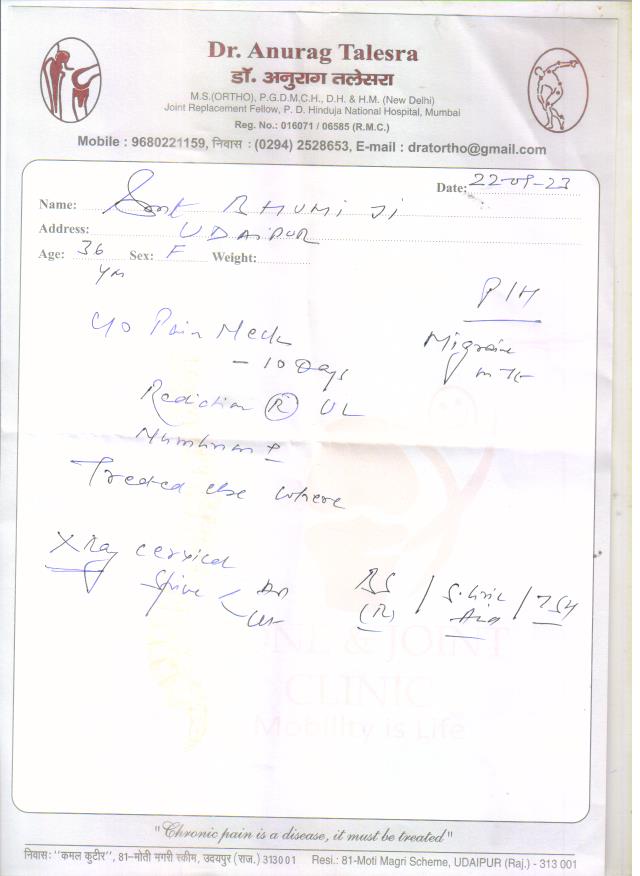 Dr. Anurag Talesra
डॉ. अनुराग तलेसरा
M.S.(ORTHO), P.G.D.M.C.H., D.H. & H.M. (New Delhi)
Joint Replacement Fellow, P. D. Hinduja National Hospital, Mumbai
Reg. No.: 016071 / 06585 (R.M.C.)
Mobile : 9680221159, निवास : (0294) 2528653, E-mail : dratortho@gmail.com
Date: 22-09-23
Name: Smt BHUMI Ji
Address: UDAIPUR
Age: 36 Sex: F Weight:
yrs
P/H
c/o Pain Neck
Migraine
- 10 Days
on Tt
Radiation (R) UL
Numbness +
Treated else where
X Ray cervical
Spine < AP
Lat
BS / S. Uric / TSH
(R) Acid
SPINE & JOINT
CLINIC
Mobility is Life
"Chronic pain is a disease, it must be treated"
निवास: "कमल कुटीर", 81-मोती मगरी स्कीम, उदयपुर (राज.) 313001 Resi.: 81-Moti Magri Scheme, UDAIPUR (Raj.) - 313 001